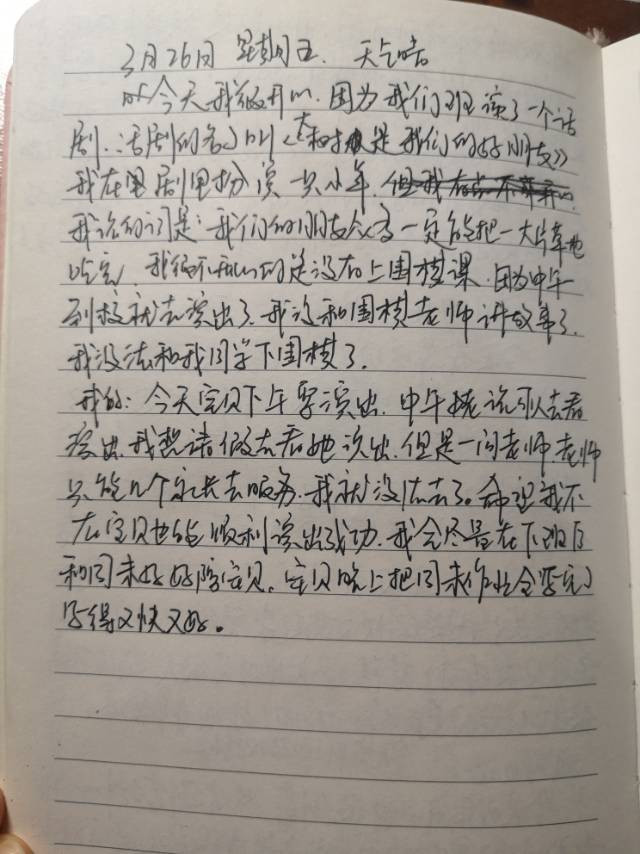 3月26日 星期五. 天气晴
今天我很开心. 因为我们班演了一个话
剧. 话剧的名叫《大和是我们的好朋友》
我在里剧里扮演一只小羊. 但我
我说的词是: 我们的朋友一定能把一大片草地
吃完. 我很不开心的是没有上围棋课. 因为中午
到校就去演出了. 我没和围棋老师讲故事了.
我没法和我同学下围棋了.
我的: 今天宝贝下午要演出. 中午说可以去看
演出. 我想请假去看她演出. 但是一问老师. 老师
只能几个家长去服务. 我就没法去了. 希望我不
在宝贝也能顺利演出成功. 我会尽量在下班后
和周末好好陪宝贝. 宝贝晚上把周末作业全写完了
写得又快又好。